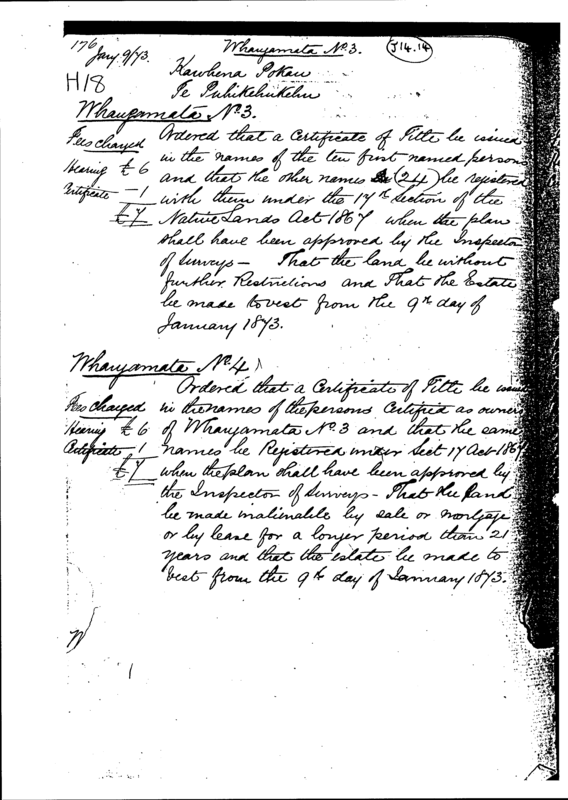 176
Jany 9/73.
Whangamata No. 3.
J14.14
H18
Kawhena Pokau
Te Puhikehukehu
Whangamata No. 3.
Fees charged
Hearing £6
Certificate - 1
£7
Ordered that a Certificate of Title be issued
in the names of the ten first named person
and that the other names (24) be registered
with them under the 17th section of the
Native Lands Act 1867 when the plan
shall have been approved by the Inspector
of Surveys - That the land be without
further Restrictions and That the Estate
be made to vest from the 9th day of
January 1873.
Whangamata No. 4
Fees charged
Hearing £6
Certificate - 1
£7
Ordered that a Certificate of Title be issued
in the names of the persons Certified as owners
of Whangamata No. 3 and that the same
names be Registered under Sect 17 Act 1867
when the plan shall have been approved by
the Inspector of Surveys - That the Land
be made inalienable by sale or mortgage
or by lease for a longer period than 21
years and that the estate be made to
vest from the 9th day of January 1873.